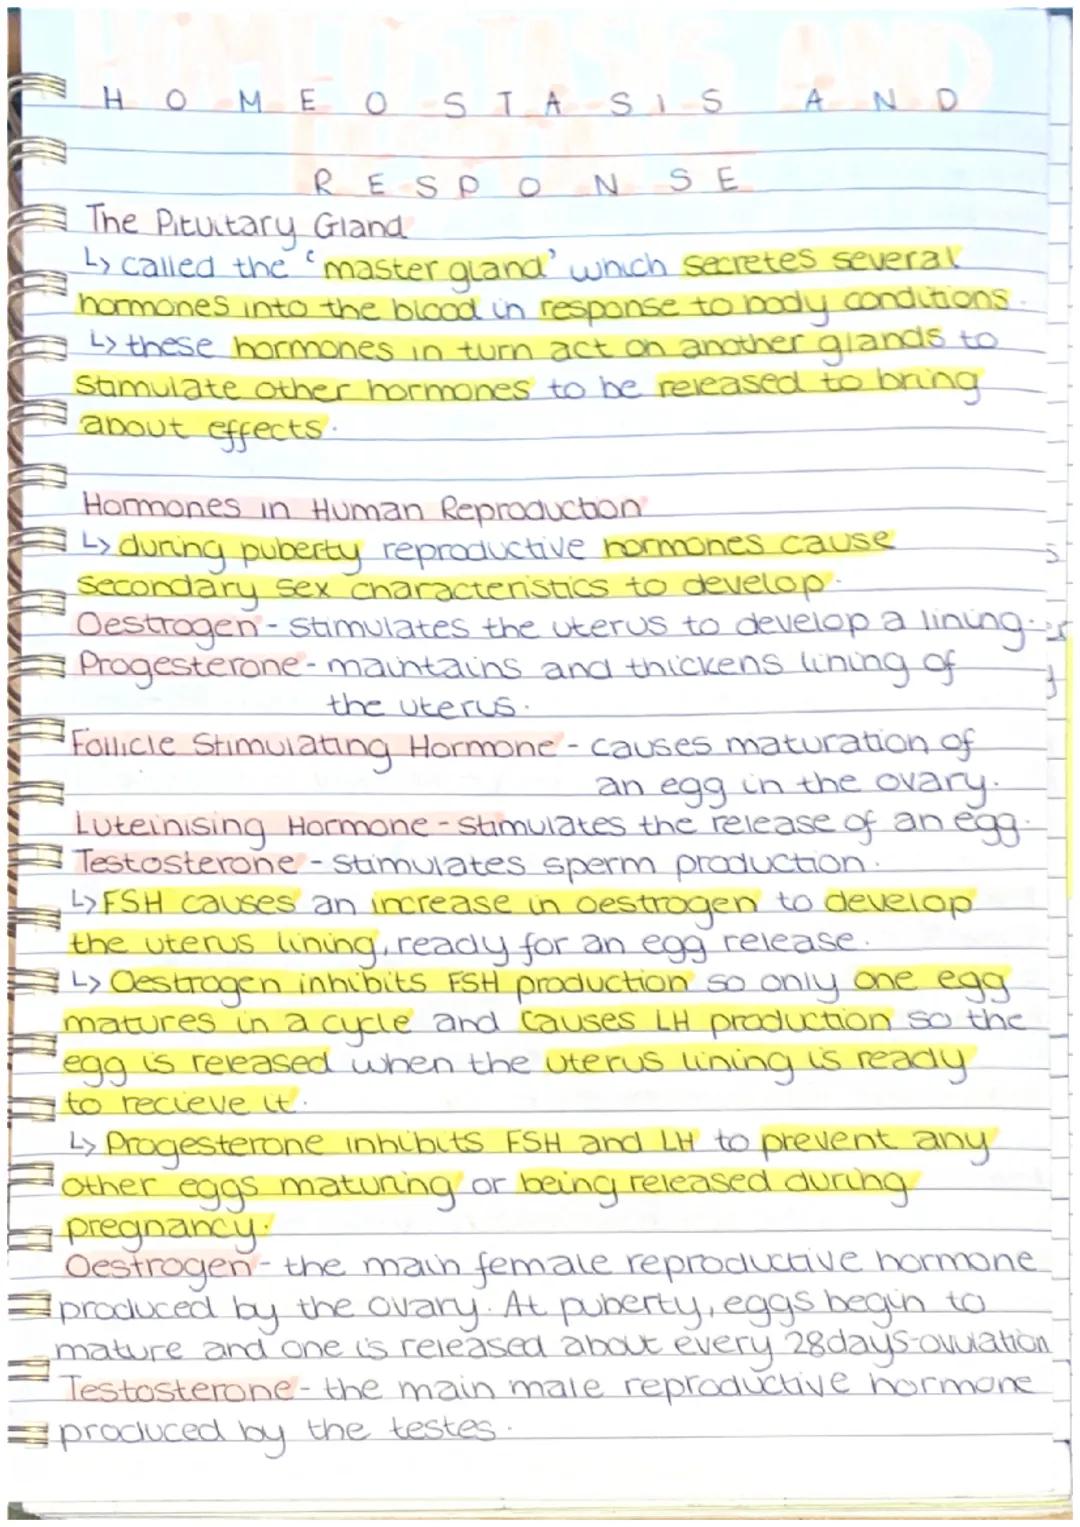 HOMEOSTASIS AND
RESPONSE
The Pituitary Gland
↳ called the 'master gland' which secretes several
hormones into the blood in response to body conditions.
↳ these hormones in turn act on another glands to
stimulate other hormones to be released to bring
about effects.
Hormones in Human Reproduction
↳ during puberty reproductive hormones cause
secondary sex characteristics to develop.
Oestrogen - stimulates the uterus to develop a lining.
Progesterone - maintains and thickens lining of
the uterus.
Follicle Stimulating Hormone - causes maturation of
an egg in the ovary.
Luteinising Hormone - stimulates the release of an egg.
Testosterone - stimulates sperm production.
↳ FSH causes an increase in oestrogen to develop
the uterus lining, ready for an egg release.
↳ Oestrogen inhibits FSH production so only one egg
matures in a cycle and causes LH production so the
egg is released when the uterus lining is ready
to recieve it.
↳ Progesterone inhibits FSH and LH to prevent any
other eggs maturing or being released during
pregnancy.
Oestrogen - the main female reproductive hormone
produced by the ovary. At puberty, eggs begin to
mature and one is released about every 28days-ovulation
Testosterone - the main male reproductive hormone
produced by the testes.